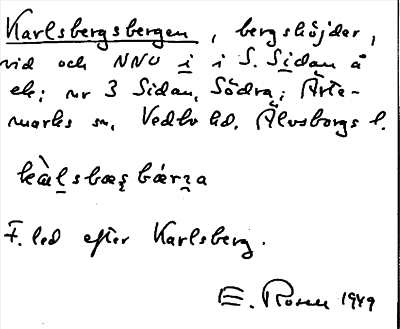 Karlsbergsbergen, bergshöjder,
vid och NNO i i S. Sidan å
ek; nr 3 Sidan, Södra; Ärte-
marks sn, Vedbo hd. Älvsborgs l.
kàlsbæṣbǽrʒa
F. led efter Karlsberg.
E. Rosen 1949